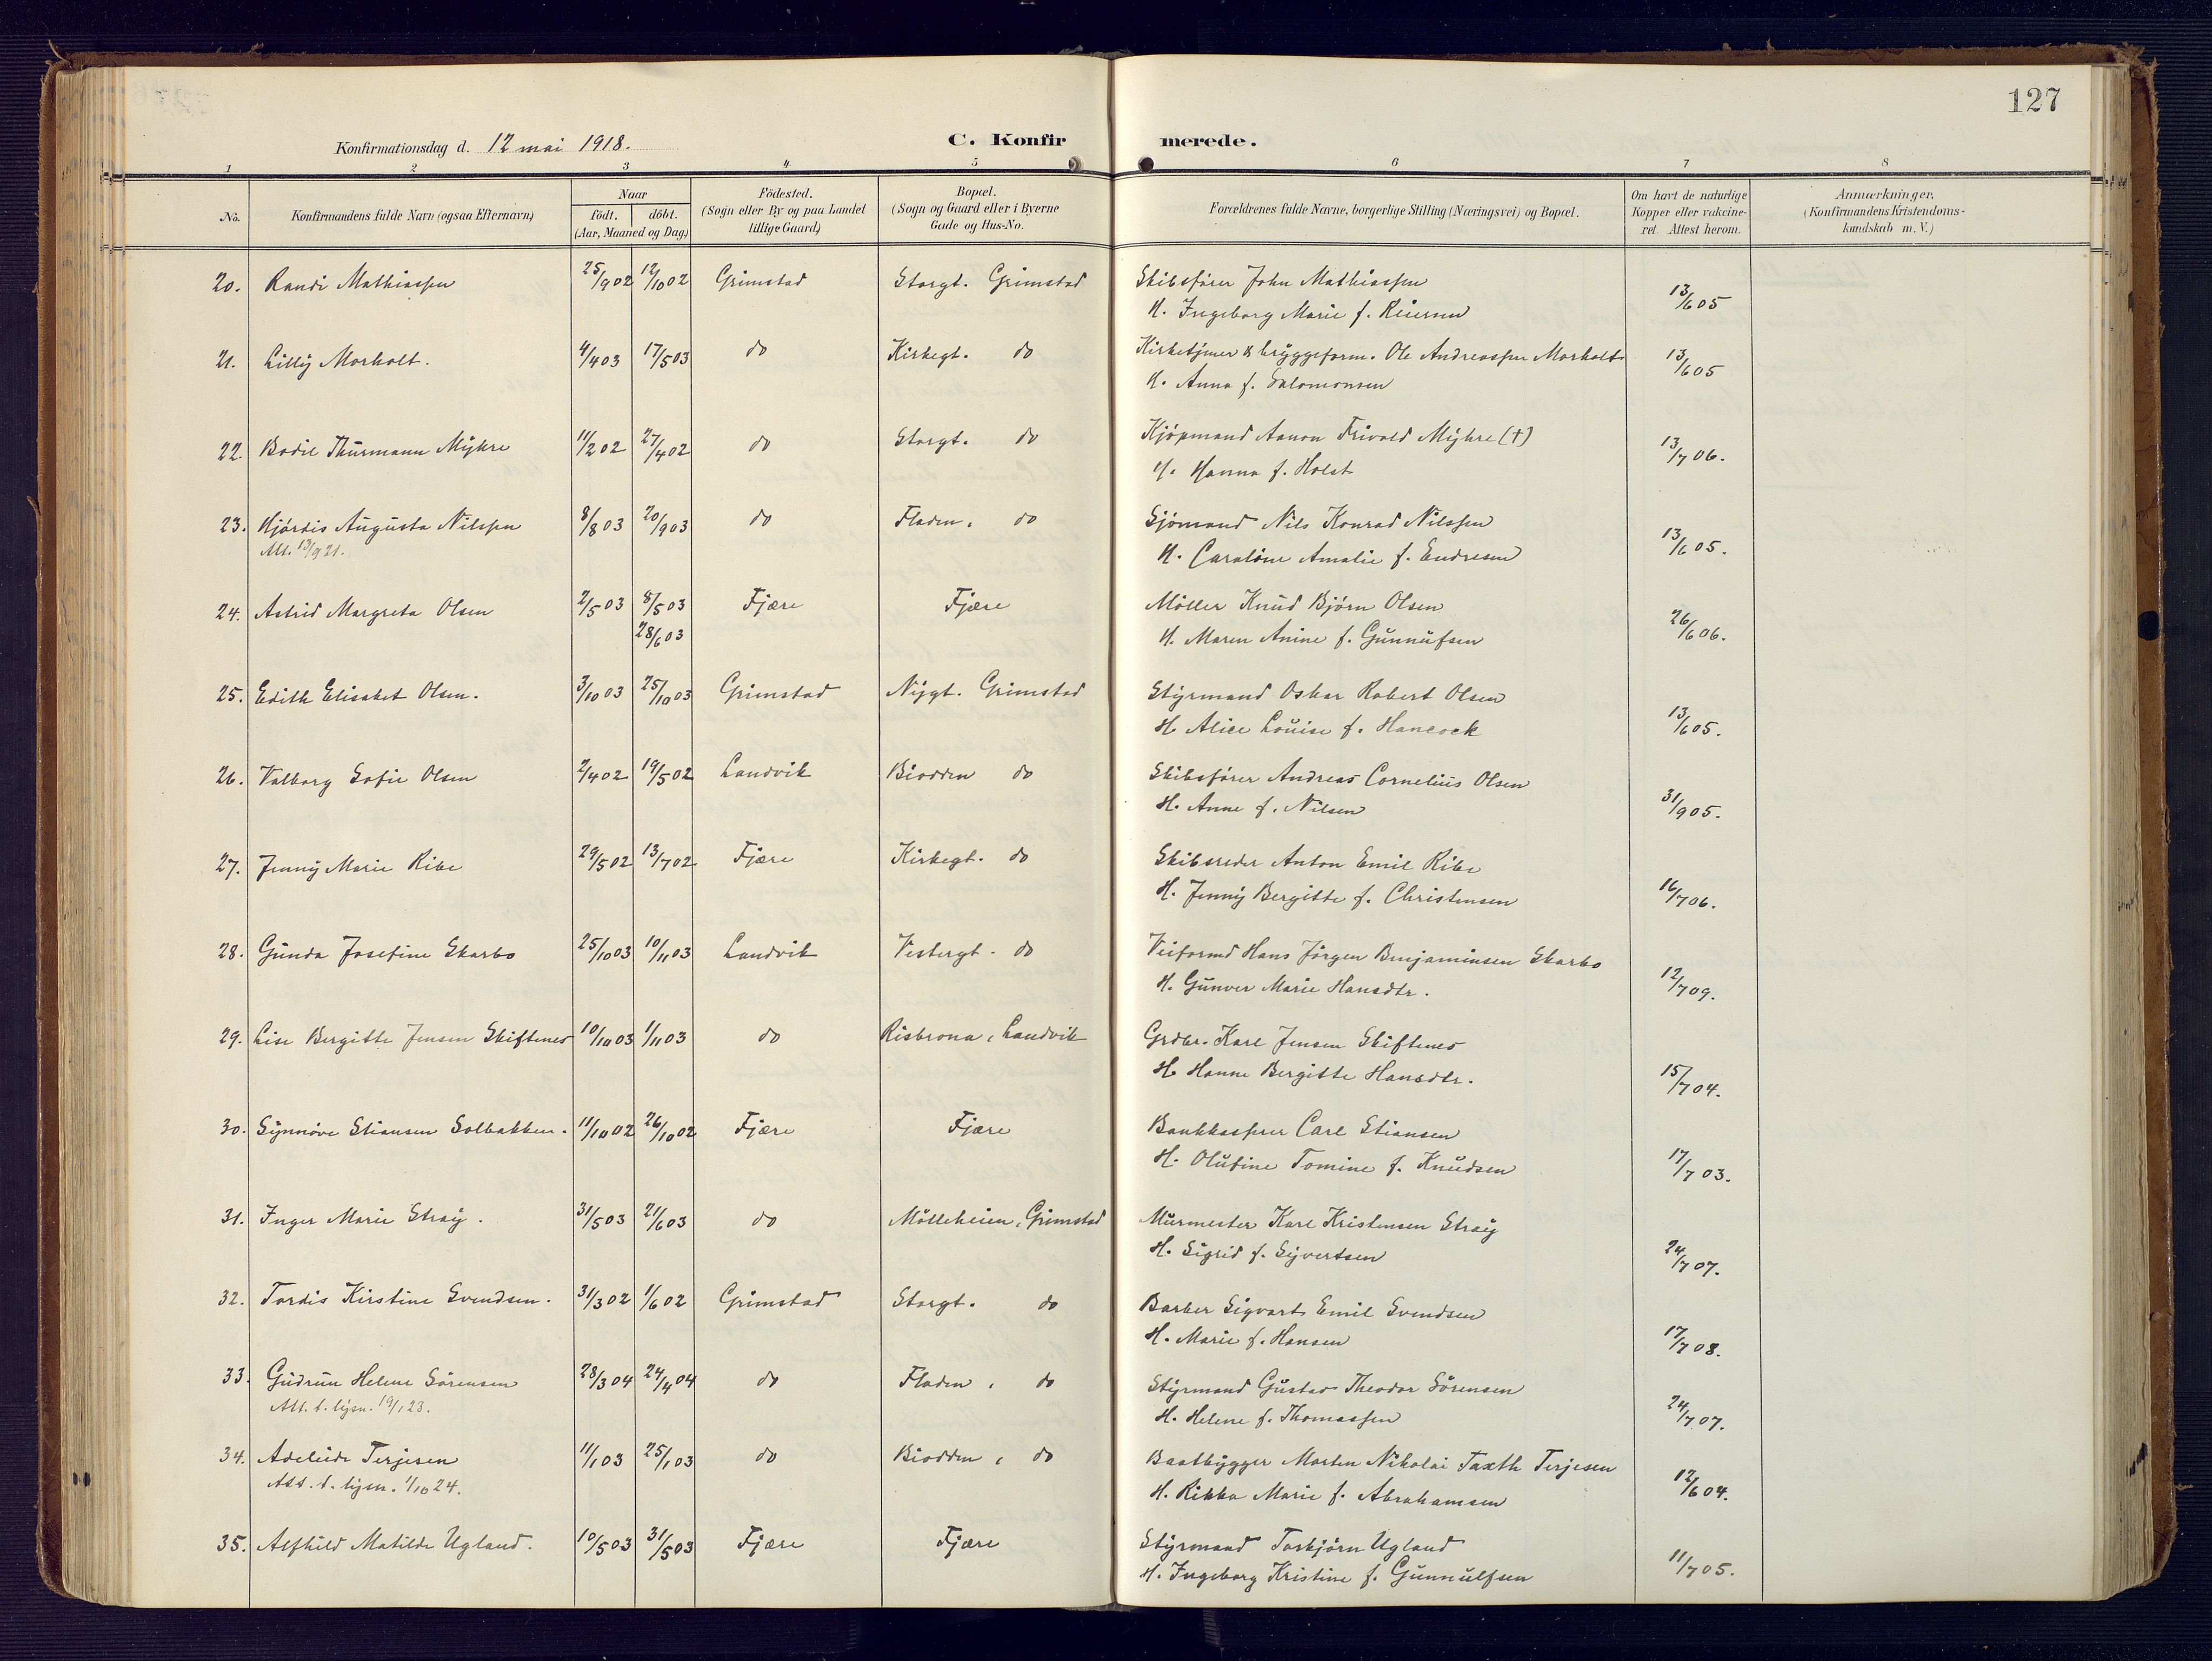 127
Konfirmationsdag d. 12 mai 1918.
C. Konfirmerede.
1 2 3 4 5 6 7 8
No. Konfirmandens fulde Navn (ogsaa Efternavn) Naar födt. döbt. (Aar, Maaned og Dag) Födested. (Sogn eller By og paa Landet tillige Gaard) Bopæl. (Sogn og Gaard eller i Byerne Gade og Hus-No. Forældrenes fulde Navne, borgerlige Stilling (Næringsvei) og Bopæl. Om havt de naturlige Kopper eller vakcineret. Attest herom. Anmærkninger. (Konfirmandens Kristendomskundskab m. V.)
20. Randi Mathiassen 25/9 02 12/10 02 Grimstad Storgt. Grimstad Skibsfører John Mathiassen 13/6 05
H. Ingeborg Marie f. Reiersen
21. Lilly Morholt. 4/4 03 17/5 03 do Kirkegt. do Kirketjener & bryggeform. Ole Andreassen Morholt 13/6 05
H. Anna f. Salomonsen
22. Bodil Thurmann Myhre 11/2 02 27/4 02 do Storgt. do Kjöpmand Aanon Trivold Myhre (†) 13/7 06.
H. Hanna f. Holst
23. Hjördis Augusta Nilssen 8/8 03 20/9 03 do Fladen, do Sjömand Nils Konrad Nilssen 13/6 05.
Att. 13/9 21. H. Caroline Amalie f. Endresen
24. Astrid Margreta Olsen 2/5 03 8/5 03 Fjære Fjære Möller Knud Björn Olsen 26/6 06.
28/6 03 H. Maren Anine f. Gunnufsen
25. Edith Elisabet Olsen. 3/10 03 25/10 03 Grimstad Nygt. Grimstad Styrmand Oskar Robert Olsen 13/6 05.
H. Alice Louise f. Hancock
26. Valborg Sofie Olsen 2/4 02 19/5 02 Landvik Biodden do Skibsförer Andreas Cornelius Olsen 31/9 05.
H. Anne f. Nilsen
27. Jenny Marie Ribe 29/5 02 13/7 02 Fjære Kirkegt. do Skibsreder Anton Emil Ribe 16/7 06.
H. Jenny Bergitte f. Christensen
28. Gunda Josefine Skarbo 25/10 03 10/11 03 Landvik Vestergt. do Veiformd Hans Jörgen Benjaminsen Skarbo 12/7 09.
H. Gunver Marie Hansdtr.
29. Lise Bergitte Jensen Skiftenes 10/10 03 1/11 03 do Risbrona, Landvik Grdbr. Karl Jensen Skiftenes 15/7 04.
H. Hanne Bergitte Hansdtr.
30. Synnöve Stiansen Solbakken. 11/10 02 26/10 02 Fjære Fjære Bankkasserer Carl Stiansen 17/7 03.
H. Olufine Tomine f. Knudsen
31. Inger Marie Stray. 31/5 03 21/6 03 do Mölleheien, Grimstad Murmester Karl Kristensen Stray 24/7 07.
H. Sigrid f. Syvertsen
32. Tordis Kirstine Svendsen. 31/3 02 1/6 02 Grimstad Storgt. do Barber Sigvart Emil Svendsen 17/7 08.
H. Marie f. Hansen
33. Gudrun Helene Sörensen 28/3 04 24/4 04 do Fladen, do Styrmand Gustav Theodor Sörensen 24/7 07.
Att. t. lysn. 19/1 23. H. Helene f. Thomassen
34. Adeleide Terjesen 11/1 03 25/1 03 do Biodden, do Baatbygger Morten Nikolai Taxth Terjesen 12/6 04.
Att. t. lysn. 1/10 24. H. Rikka Marie f. Abrahamsen
35. Alfhild Matilde Ugland. 10/5 03 31/5 03 Fjære Fjære Styrmand Torbjörn Ugland 11/7 05.
H. Ingeborg Kristine f. Gunnulfsen